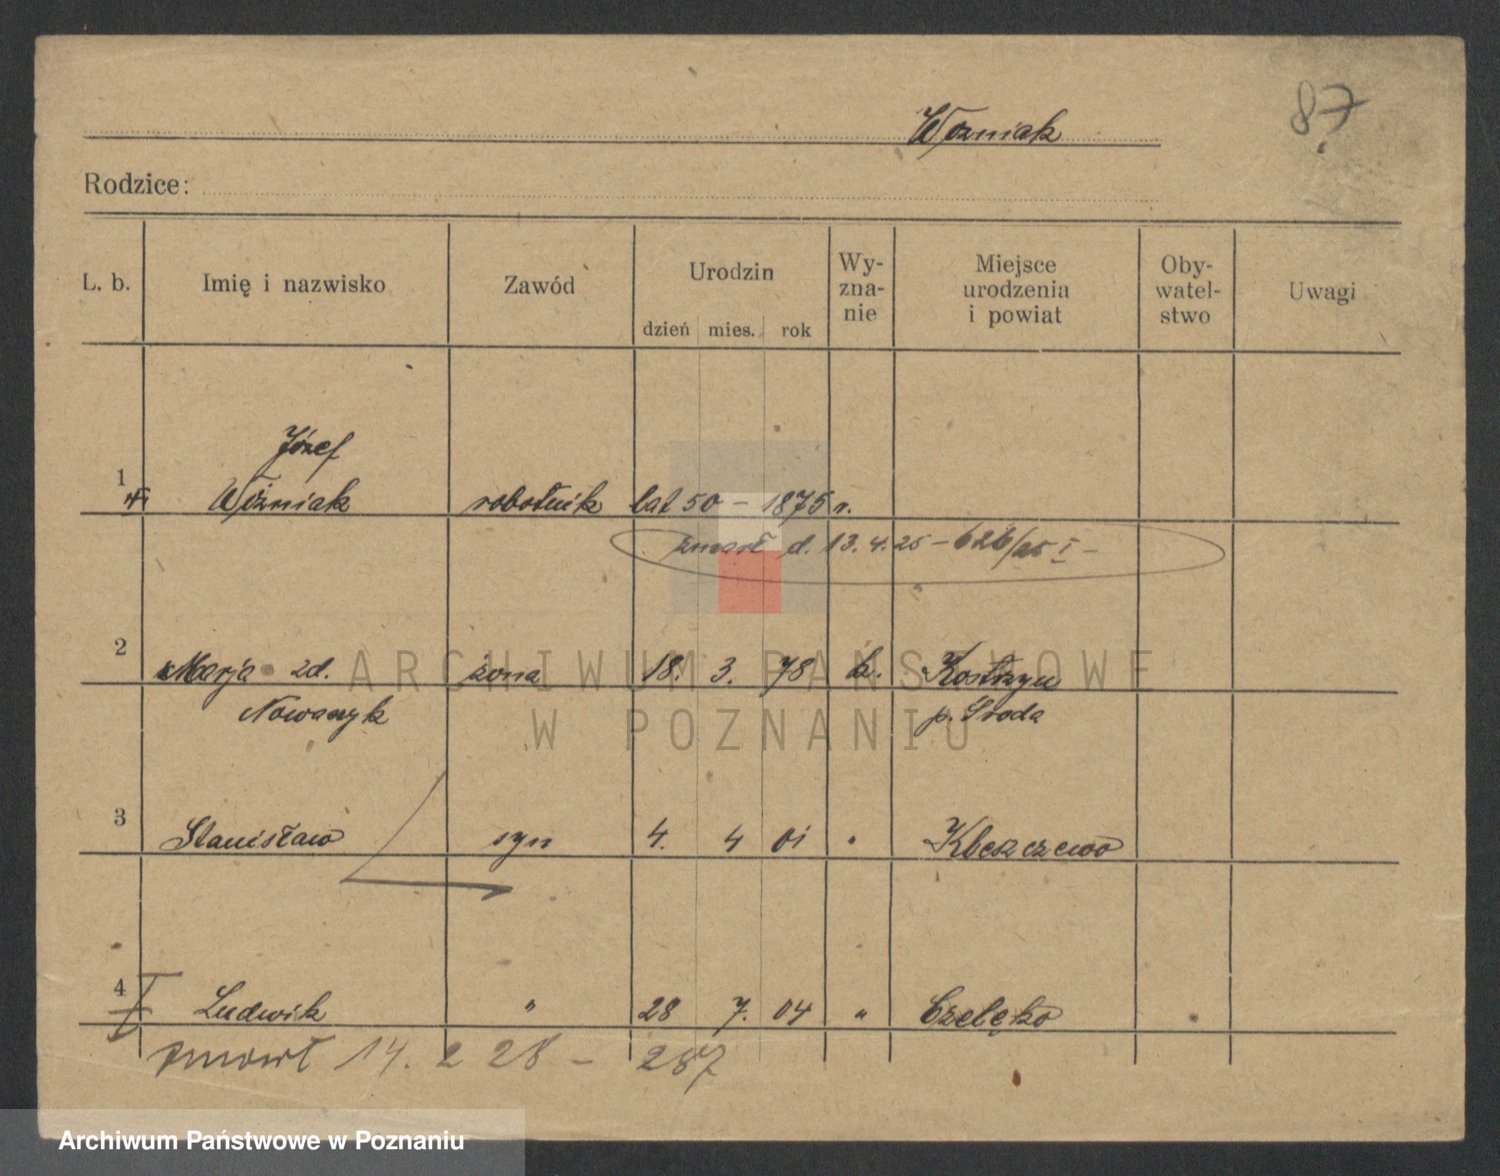 87
Woźniak
Rodzice:
L. b. Imię i nazwisko Zawód Urodzin Wy-zna-nie Miejsce urodzenia i powiat Oby-watel-stwo Uwagi
dzień mies. rok
Józef
1 Woźniak robotnik lat 50 – 1875 r.
zmarł d. 13.4.25 – 626/25 I –
2 Marja zd. żona 18. 3. 78 k. Kostrzyn
Nowaczyk p. Środa
3 Stanisław syn 4. 4 01 " 
4 Ludwik " 28 7. 04 "
zmarł 14. 2 28 – 287
ARCHIWUM PAŃSTWOWE
W POZNANIU
Archiwum Państwowe w Poznaniu